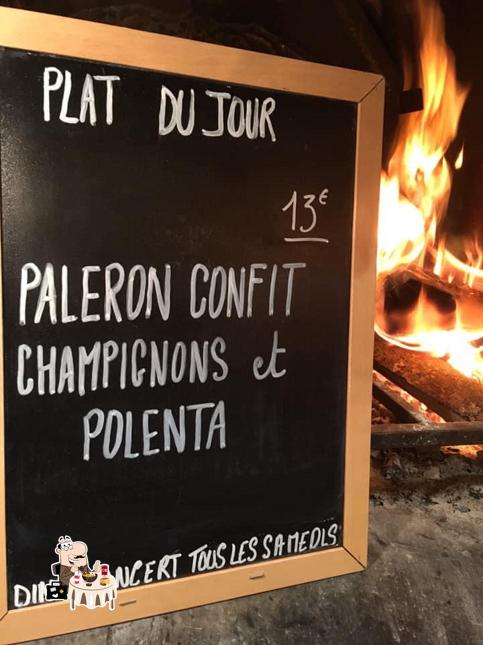 PLAT DU JOUR
13€
PALERON CONFIT
CHAMPIGNONS et
POLENTA
TOUS LES SAMEDIS